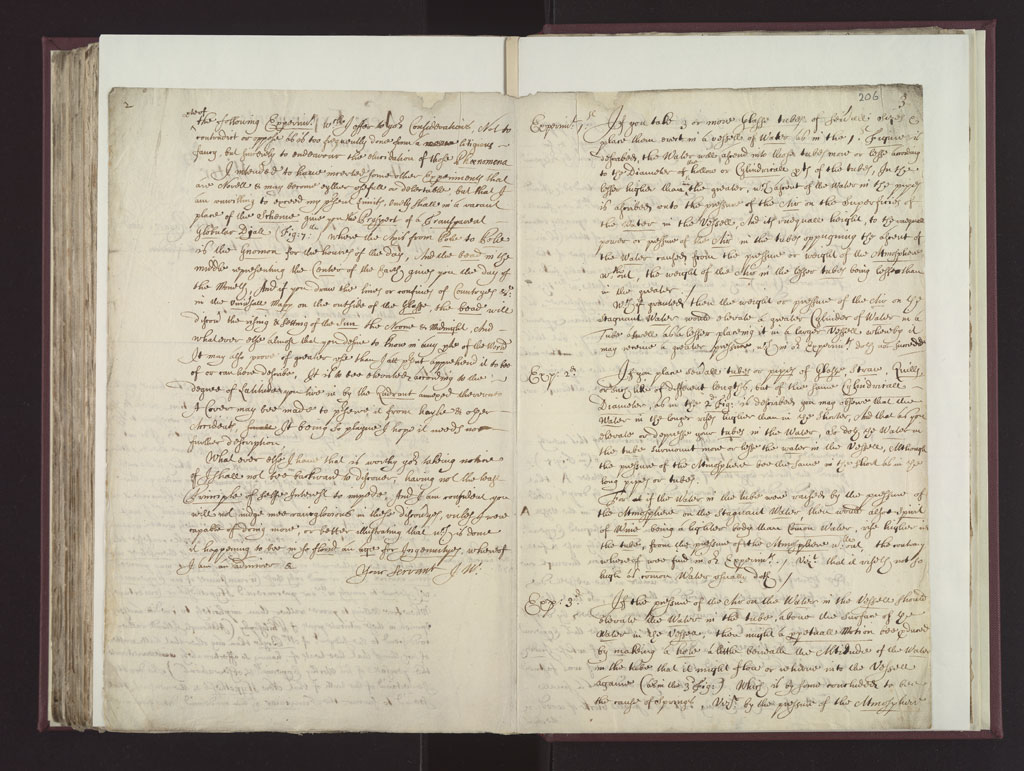 2
most of
the following Experimts, wch I offer to yor Considerations, Not to
contradict or oppose as is too frequently done from a meere litigious
fancy, but purely to endeavour the elucidation of those Phænomena
I intended to have inserted some other Experiments that
are Novell & may become either usefull or delectable but that I
am unwilling to exceed my present Limits, onely shall in a vacant
place of the Scheme give you the Prospect of a Transparent
Globular Dyall (Fig: 7.) where the Axis from Pole to Pole
is the Gnomon for the houres of the day, And the bead in the
middle representing the Center of the Earth gives you the day of
the Moneth, And if you draw the lines or confines of Countryes &c.
in the Vniversall Mapp on the outside of the Glasse, the bead will
discover the rising & setting of the Sun the Noone & Midnight, And
whatever else almost that you desire to know in any pte of the World
It may also prove of greater use than I att psent apprehend it to bee
of or can here describe, It is to bee elevated according to the
degree of Latitude you live in by the Quadrant annexed thereunto
A Cover may bee made to preserve it from Hayle & other
Accident, It being so plaine I hope it needs no
further description.
What ever else I have that is worthy yor taking notice
of I shall not bee backward to discover, having not the least
Principle of selfe Interest to impede, And I am confident you
will not judge mee vainglorious in these discoveryes, unlesse I were
capable of doing more, or better illustrating that wch is done
it happening to bee in so florid an age for Ingenuityes, whereof
I am an admirer &
Your Servant J W.
206
3
Experimt. 1st
If you take 3 or more Glasse tubes of severall sizes &
place them erect in a vessell of Water as in the 1st Figure is
described, the Water will ascend into those tubes more or lesse according
to the Diameter of the hollow or Cylindricall pts of the tubes, In the
lesser higher than the greater, wch ascent of the Water in the pipes
is ascribed unto the pressure of the Air on the superficies of
the Water in the Vessell, And its inequall height, to the inequall
power or pressure of the Air in the tubes oppugning the ascent of
the Water caused from the pressure or weight of the Atmosphere
without, the weight of the Air in the lesser tubes being lesse than
in the greater /
Wch if granted then the weight or pressure of the Air on the
stagnant Water would elevate a greater Cylinder of Water in a
Tube aswell as the lesser placing it in a larger Vessell whereby it
may receive a greater pressure, wch in or Experimt doth not succede
Exp: 2d
If you place severall tubes or pipes of Glasse, Straw, Quills
or such like of different lengths, but of the same Cylindricall
Diameter, as in the 2d Fig: is described you may observe that the
Water in the longer rises higher than in the shorter, And that as you
elevate or depresse your tubes in the Water, so doth the Water in
the tube surmount more or lesse the water in the Vessell, Although
the pressure of the Atmosphere bee the same in the short as in the
long pipes or tubes.
For if the Water in the tube were raised by the pressure of
the Atmosphere on the Stagnant Water then would also Spirit
of Wine being a lighter body than common Water, rise higher in
the tube, from the pressure of the Atmosphere without, the contrary
whereof wee find in or Experimt. / Vizt. that it riseth not so
high as common Water usually doth /
Exp: 3d
If the pressure of the Air on the Water in the Vessell should
elevate the Water in the tube, above the surface of the
Water in the Vessell, then might a ppetuall Motion bee pduced
by making a hole a little beneath the Altitude of the Water
in the tube that it might flow or returne into the Vessell
againe (as in the 3d Fig:) Which is by some concluded to bee
the cause of Springs, Vizt. by the pressure of the Atmosphere